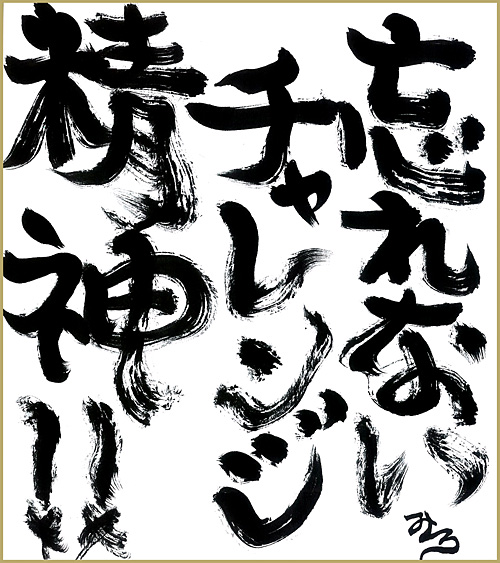 忘れない
チャレンジ
精神!!
みつろ